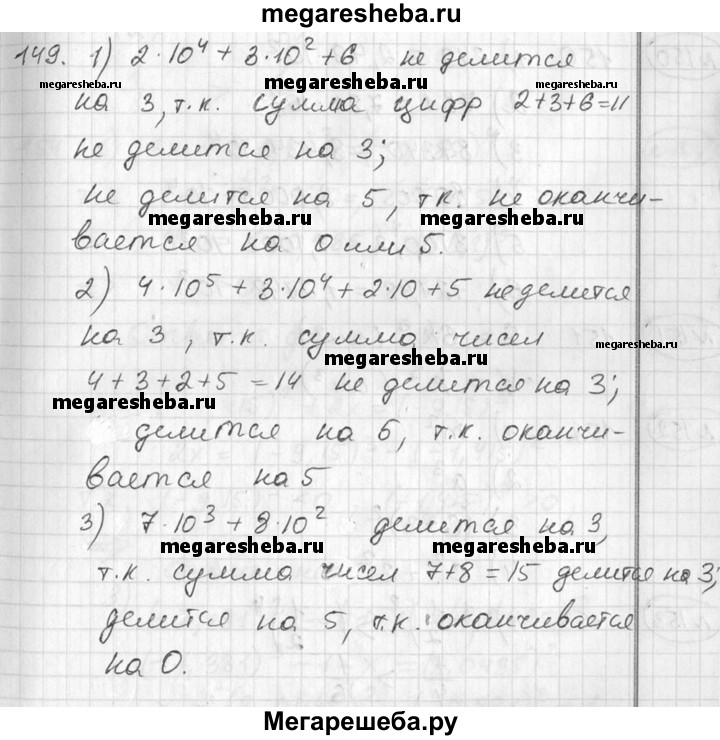 megaresheba.ru
149. 1) 2·10⁴ + 3·10² + 6 не делится
megaresheba.ru megaresheba.ru megaresheba.ru
на 3, т.к. сумма цифр 2+3+6=11
не делится на 3;
не делится на 5, т.к. не оканчи-
megaresheba.ru megaresheba.ru
вается на 0 или 5.
2) 4·10⁵ + 3·10⁴ + 2·10 + 5 не делится
на 3, т.к. сумма чисел
megaresheba.ru megaresheba.ru
4+3+2+5=14 не делится на 3;
megaresheba.ru
делится на 5, т.к. оканчи-
вается на 5
3) 7·10³ + 8·10² делится на 3,
megaresheba.ru megaresheba.ru
т.к. сумма чисел 7+8=15 делится на 3;
делится на 5, т.к. оканчивается
на 0.
megaresheba.ru megaresheba.ru
Мегарешеба.ру